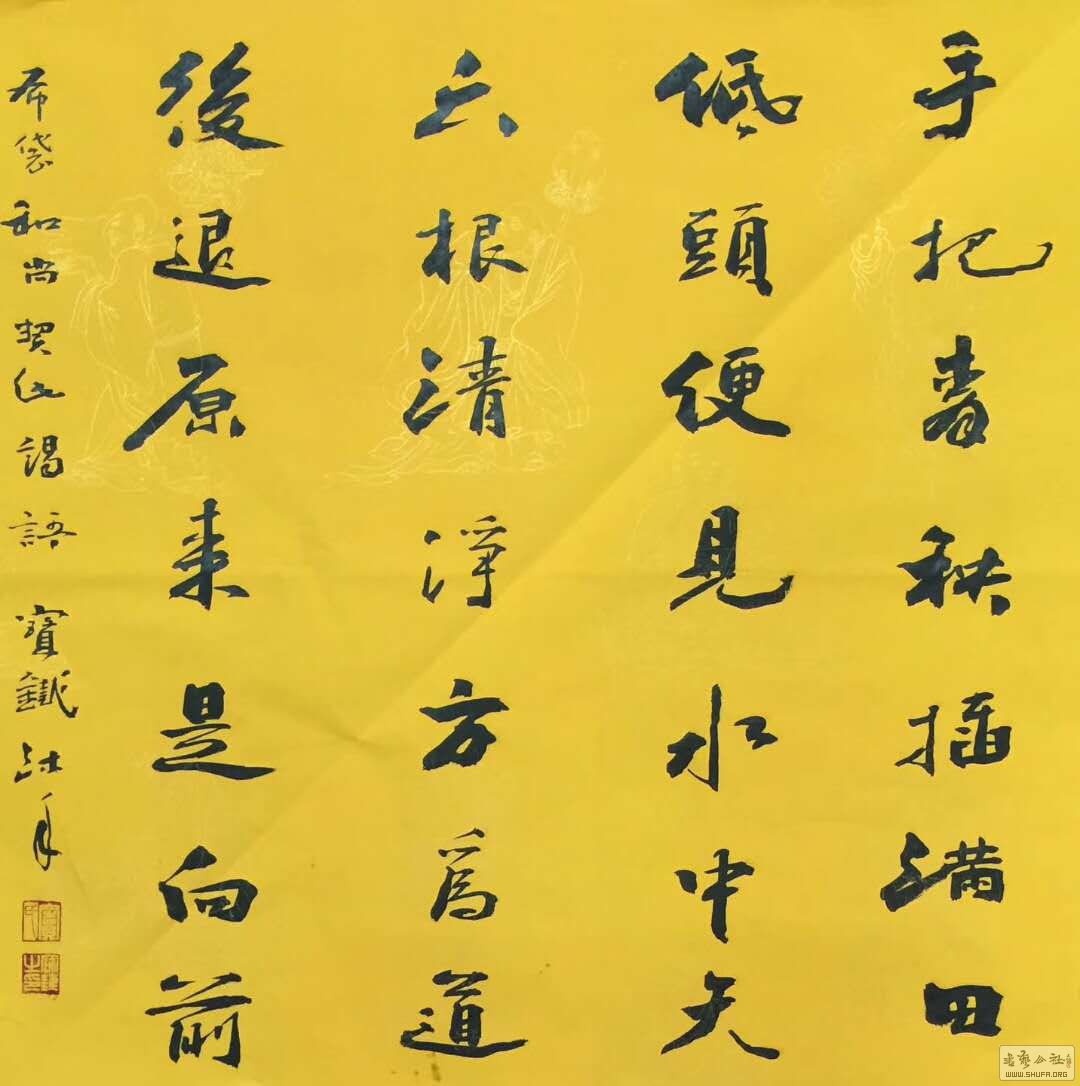 手把青秧插满田
低頭便見水中天
六根清淨方為道
後退原来是向前
布袋和尚契此謁語 寶鐵沐手
書藝公社
WWW.SHUFA.ORG